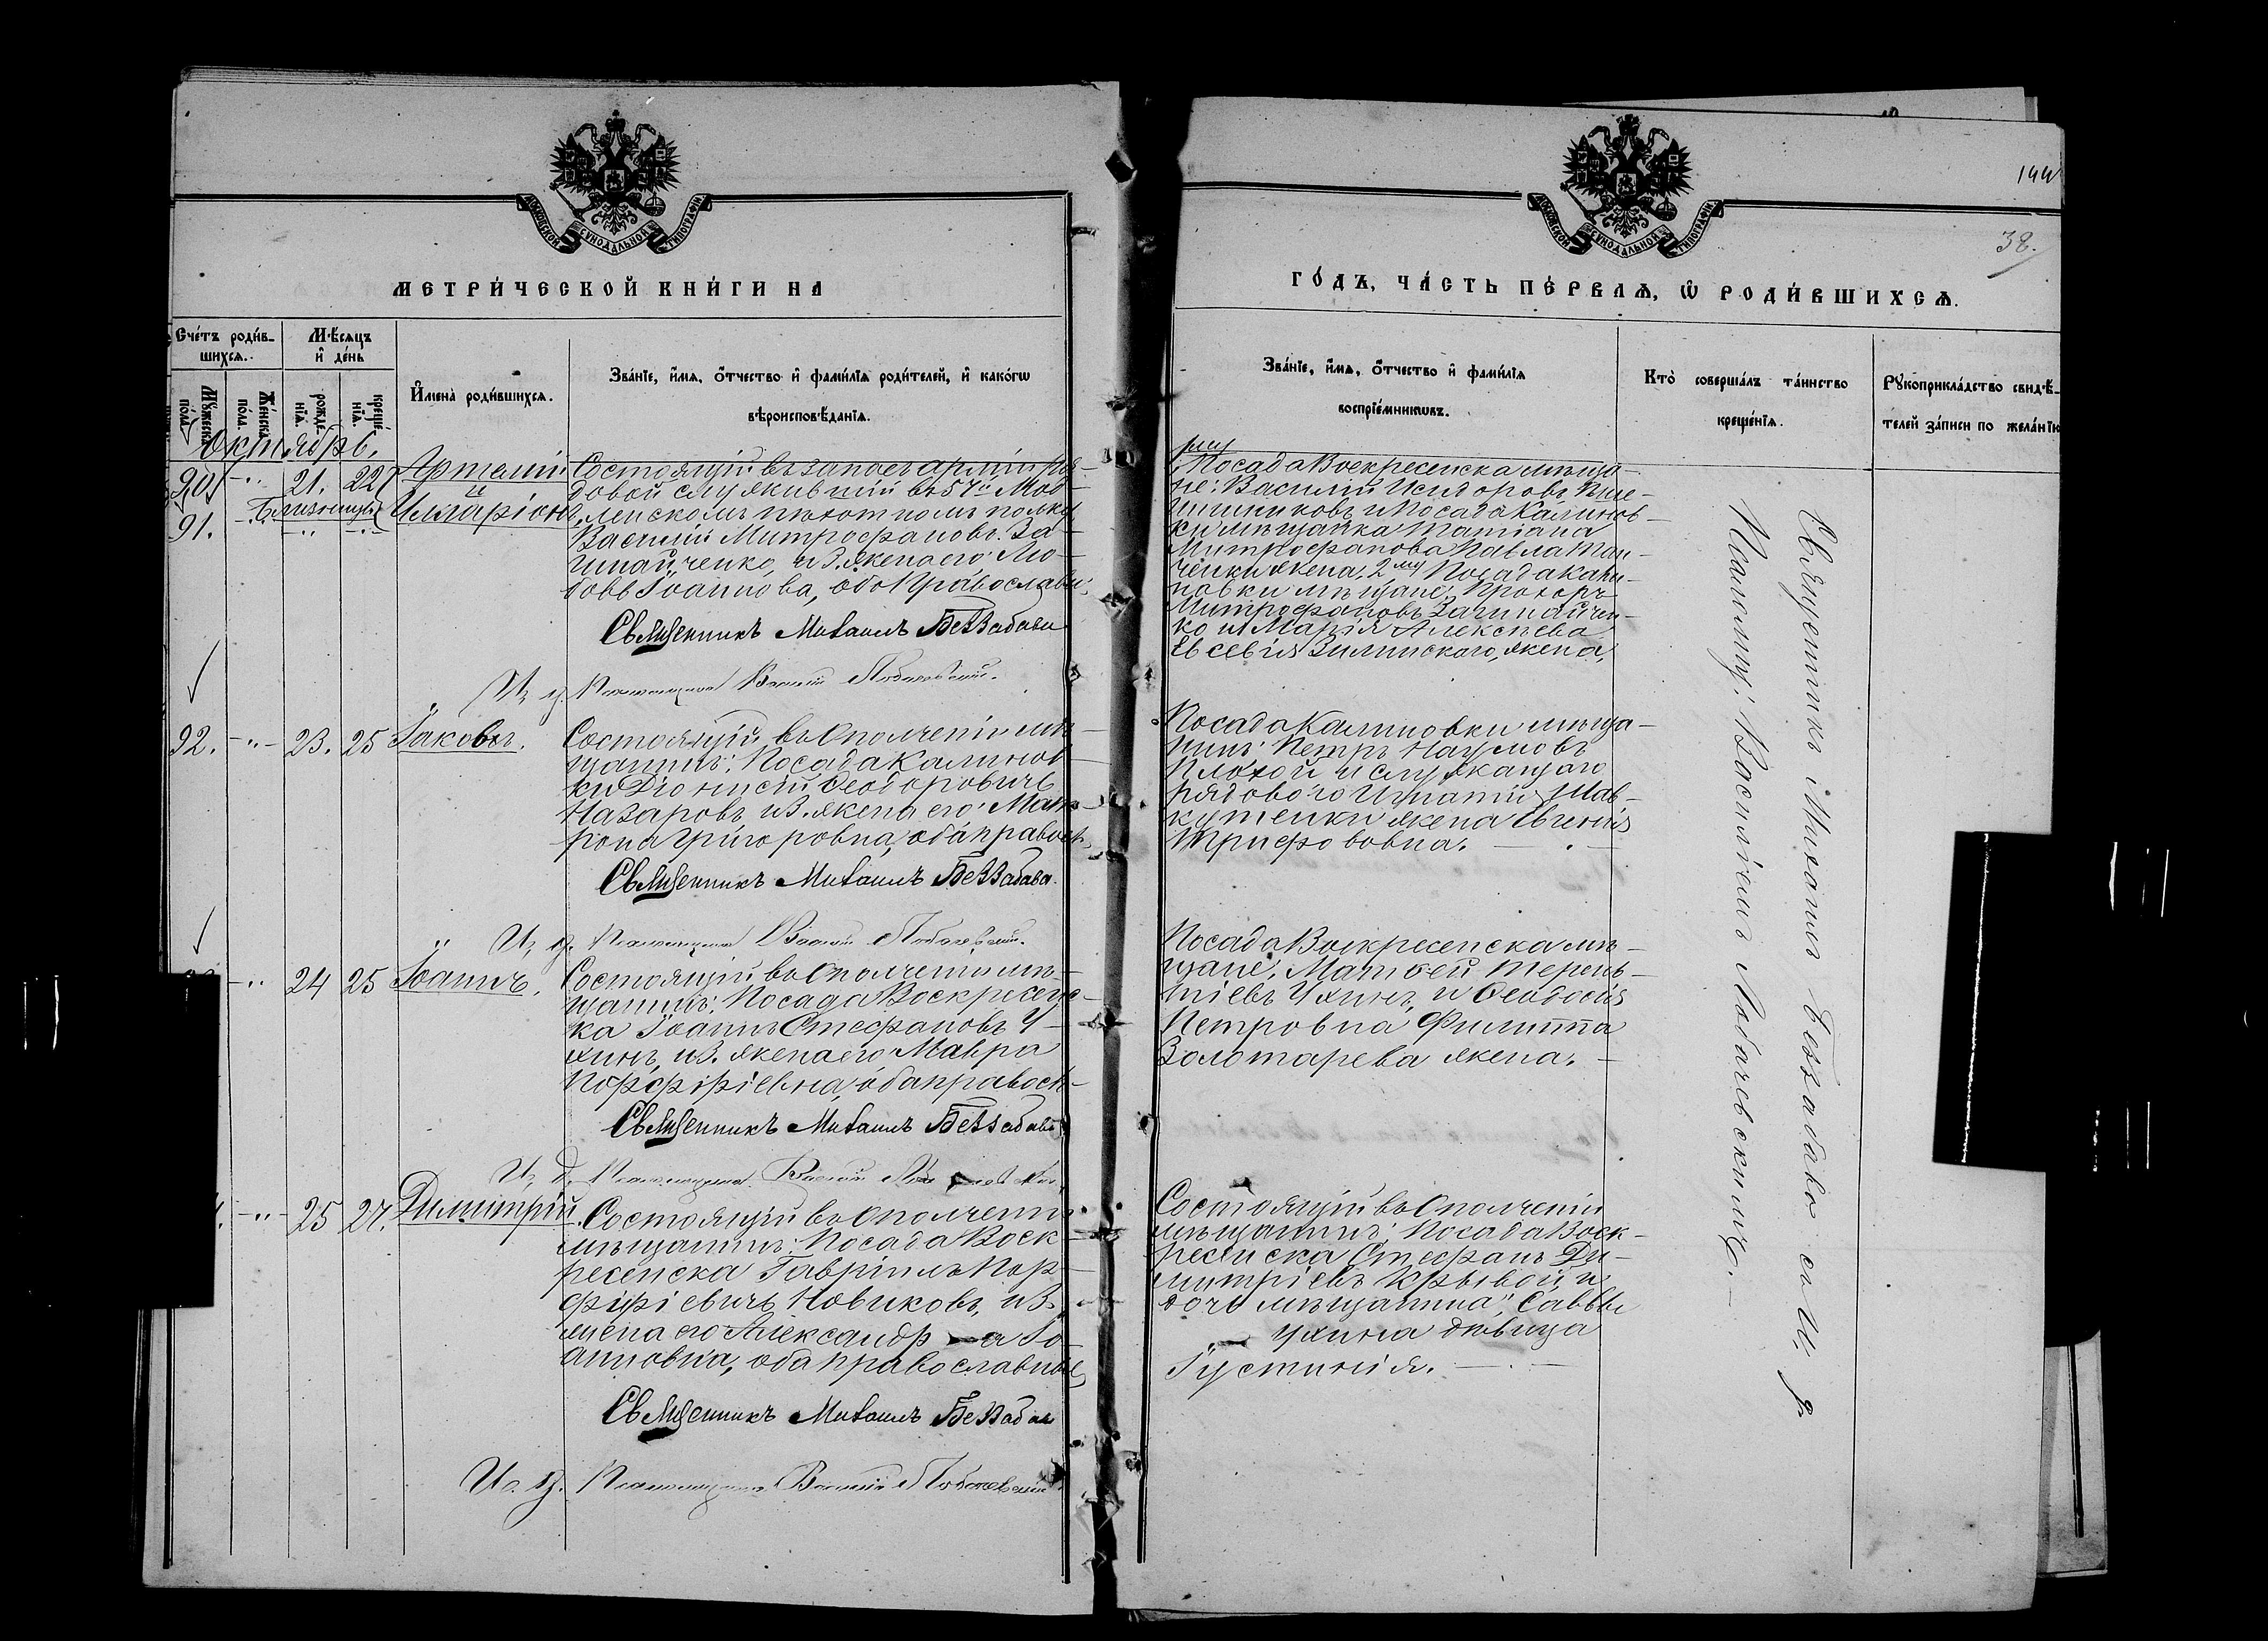 МОСКОВСКОЙ СѴНОДАЛЬНОЙ ТИПОГРАФІИ
МЕТРИ́ЧЕСКОЙ КНИ́ГИ НА
Сче́тъ роди́в-
шихсѧ.
Мѣ́сѧцъ
и҆ де́нь
И҆мена̀ роди́вшихсѧ.
Зва́нїе, и҆́мѧ, ѻ҆́тчество и҆ фами́лїѧ роди́телей, и҆ како́гѡ
вѣроисповѣ́данїѧ.
Мꙋ́жеска
по́ла
Же́нска
по́ла.
рожде́-
нїѧ.
креще́-
нїѧ.
Октябрь.
90 -"- 21. 22 Артемій
и
Близнецы Иларіонъ
91. -"- -"- -"-
Состоящій въ запасѣ арміи ря-
довой служившій въ 57й Мод-
линскомъ пѣхотномъ полку
Василій Митрофановъ За-
гинайченко, и з. жена его Лю-
бовь Іоаннова, оба Православн.
Священникъ Михаилъ Беззабава
И. д. Псаломщика Василій Лобачевскій.
92. -"- 23. 25 Іаковъ.
Состоящій въ Ополченіи мѣ-
щанинъ: Посада Калинов-
ки Діонисій Ѳеодоровичъ
Назаровъ и з. жена его Мат-
рона Григоровна, оба правосл.
Священникъ Михаилъ Беззабава.
И. д. Псаломщика Василій Лобачевскій.
-"- 24 25 Іоаннъ.
Состоящій въ Ополченіи мѣ-
щанинъ: Посада Воскресенс-
ка Іоаннъ Стефановъ У-
хинъ, и з. жена его Мавра
Порфиріевна, оба правосл-
Священникъ Михаилъ Беззабава
И. д. Псаломщика Василій
-"- 25 27. Димитрій.
Состоящій въ Ополченіи
мѣщанинъ: Посада Воск-
ресенска Гавріилъ Пор-
фиріевичъ Новиковъ, и з.
жена его Александр—а Іо-
анновна, оба православные
Священникъ Михаилъ Беззабава
Ис. д. Псаломщика Василій Лобачевскій
МОСКОВСКОЙ СѴНОДАЛЬНОЙ ТИПОГРАФІИ
144
38.
ГО́ДЪ, ЧА́СТЬ ПЕ́РВАѦ, Ѡ҆ РОДИ́ВШИХСѦ.
Зва́нїе, и҆́мѧ, ѻ҆́тчество и҆ фами́лїѧ
воспрїе́мникѡвъ.
Кто̀ соверша́лъ та́инство
креще́нїѧ.
Рꙋкоприкла́дство свидѣ́-
телей за́писи по жела́нїю
Посада Воскресенска мѣща-
не: Василій Исидоровъ
и Посада Калинов-
ки мѣщанка Татіана
Митрофанова Павла
жена, 2му Посада Кали-
новки мѣщане: Прохоръ
Митрофановъ Загинайчен-
ко и Марія Алексѣева
Евсевія Зилинскаго, жена,
Посада Калиновки мѣща-
нинъ: Петръ Наумовъ
Плохой и служащаго
рядового Игнатія Шав-
кутенки жена Евгенія
Трифоновна.
Посада Воскресенска мѣ-
щане: Матѳей Терень-
тіевъ Ухинъ, и Ѳеодосія
Петровна Филиппа
Золотарева жена.
Состоящій въ Ополченіи
мѣщанинъ: Посада Воск-
ресенска Стефанъ Ди-
митріевъ Крывой, и
дочь мѣщанина Саввы
Ухина дѣвица
Іустинія.
Священникъ Михаилъ Беззабава съ И. д.
Псаломщ. Василіемъ Лобачевскимъ.